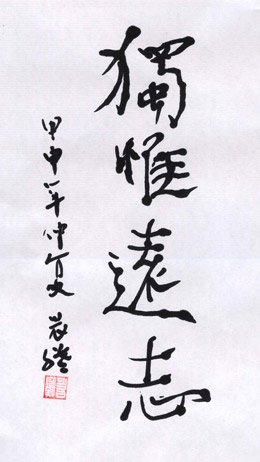 獨惟遠志
甲申年仲夏